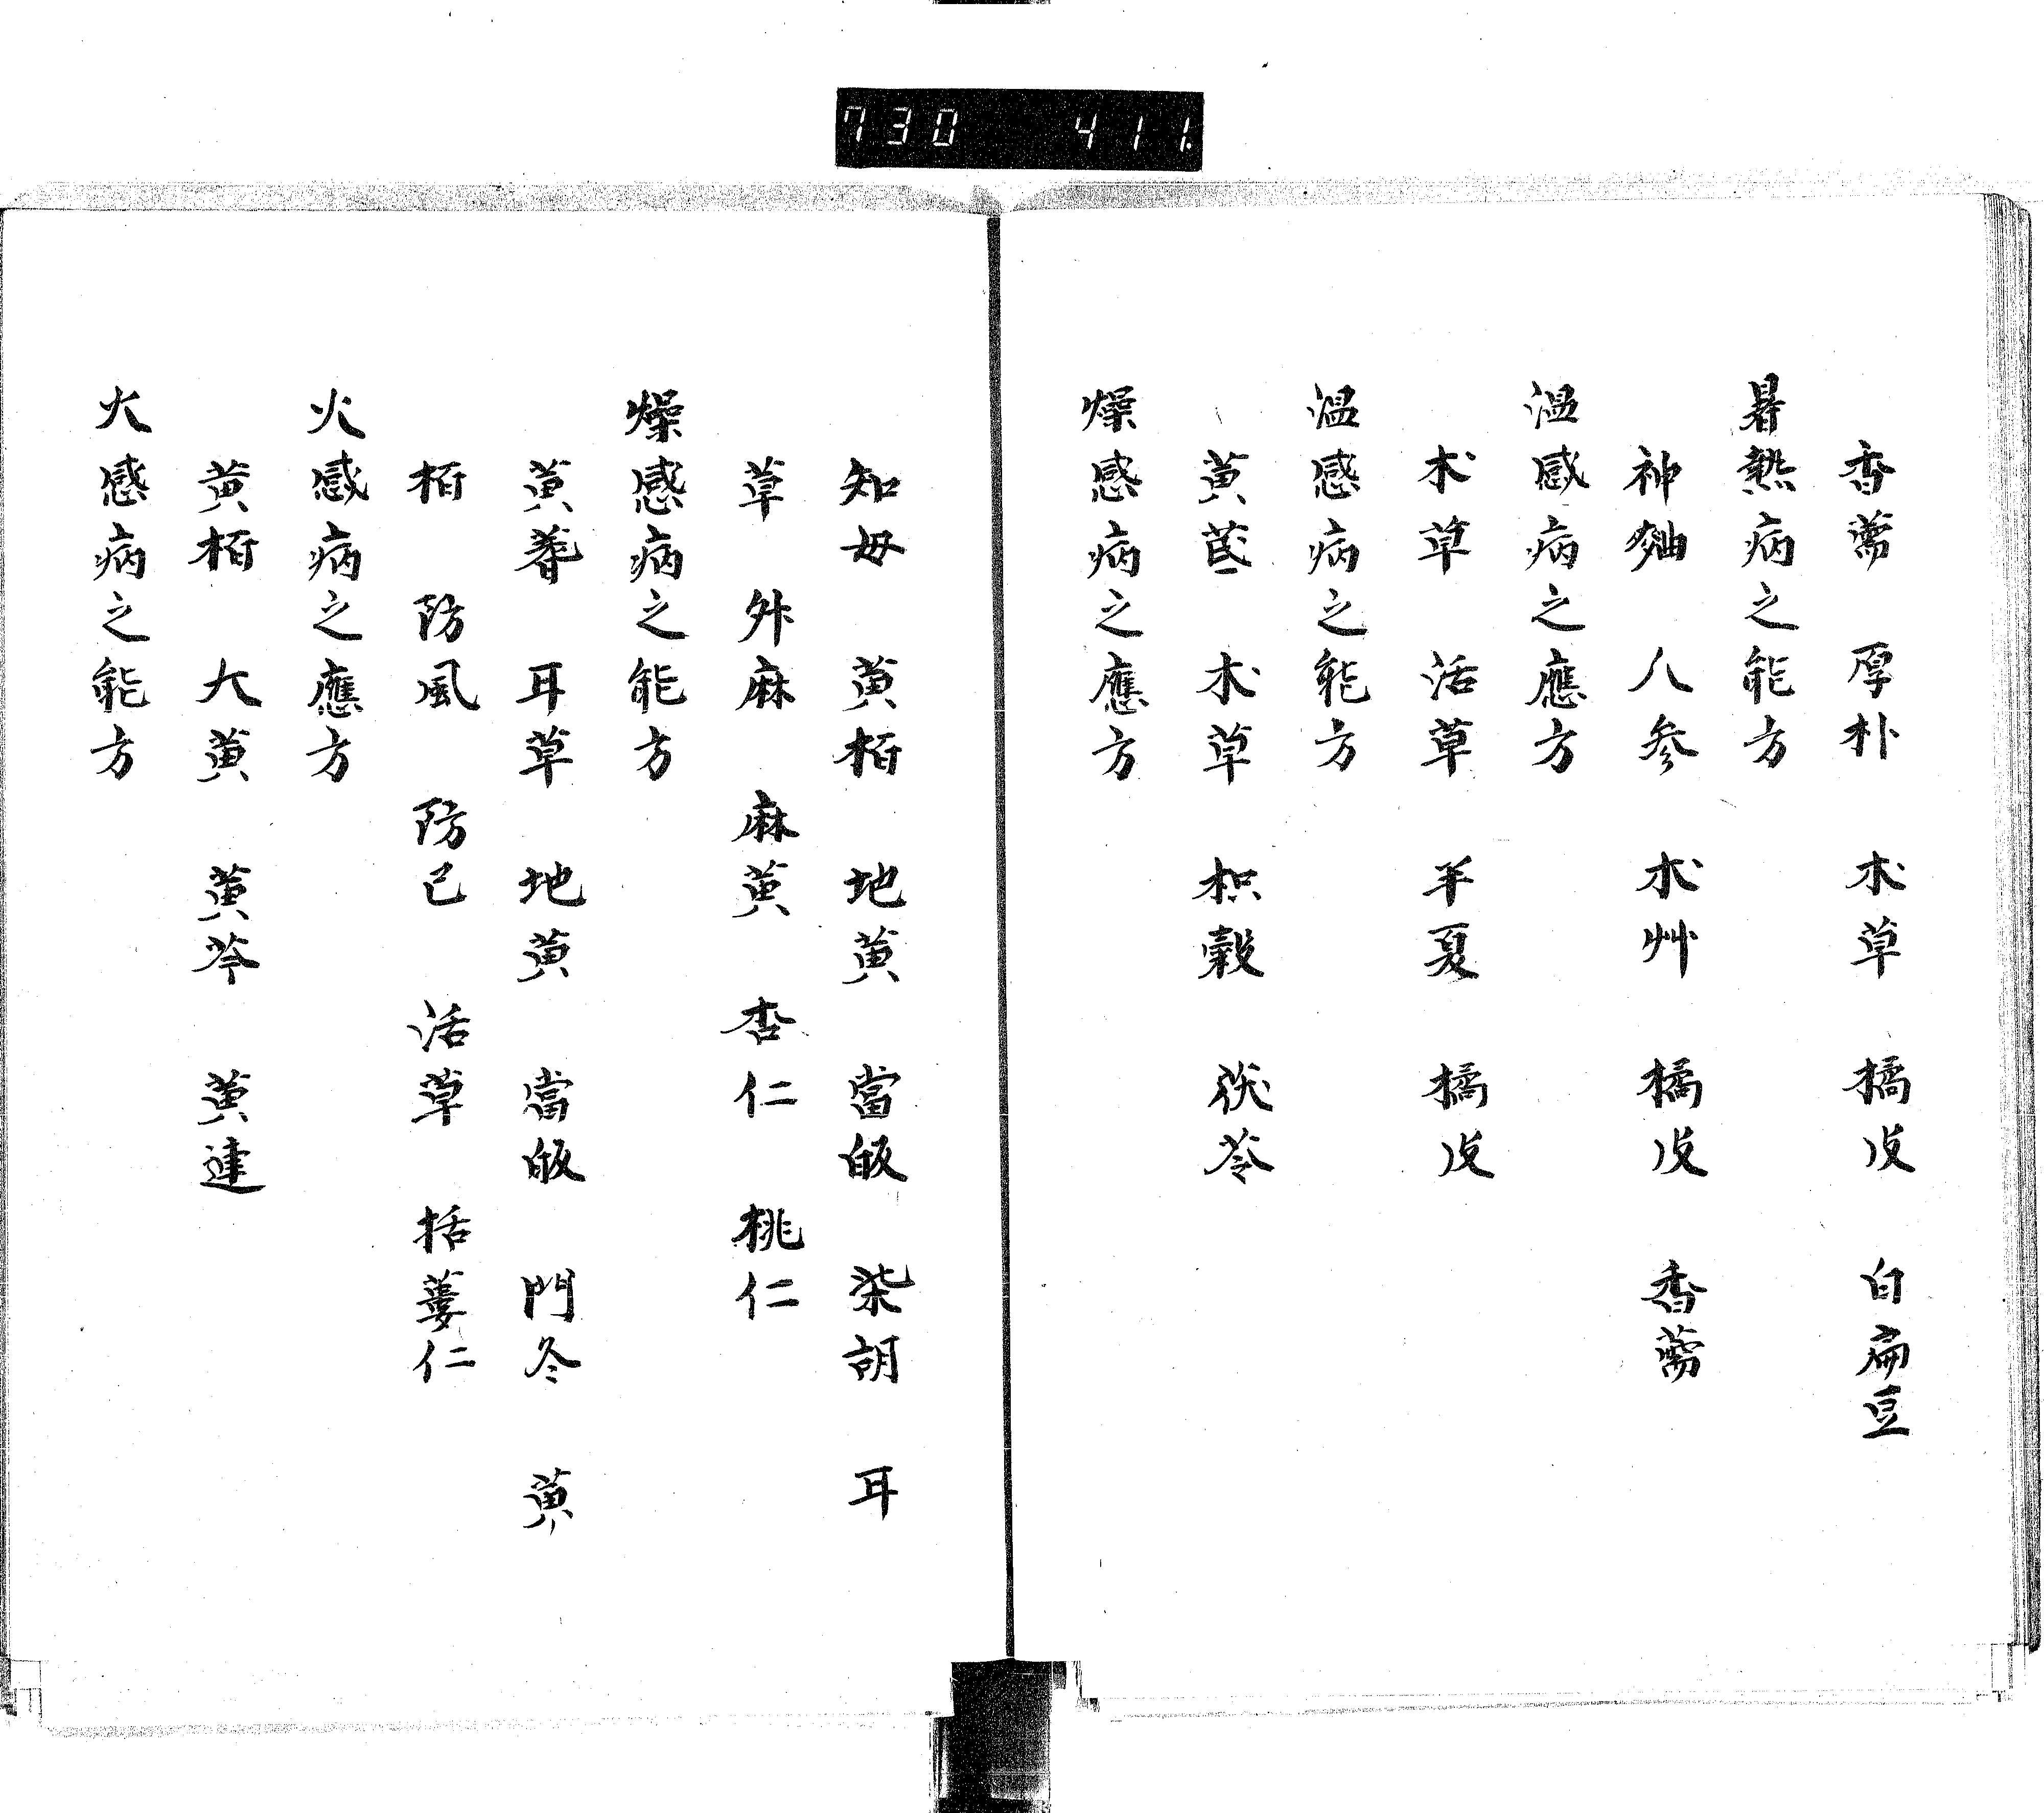 730 411.
香薷 厚朴 朮草 橘皮 白扁豆
暑熱病之能方
神麯 人参 朮艸 橘皮 香薷
温感病之應方
朮草 活草 半夏 橘皮
温感病之能方
黄茋 朮草 枳穀 茯苓
燥感病之應方
知母 黄栢 地黄 當皈 柴胡 耳
草 外麻 麻黄 杏仁 桃仁
燥感病之能方
黄蓍 耳草 地黄 當皈 門冬 黄
栢 防風 防己 活草 括蔞仁
火感病之應方
黄栢 大黄 黄芩 黄連
火感病之能方